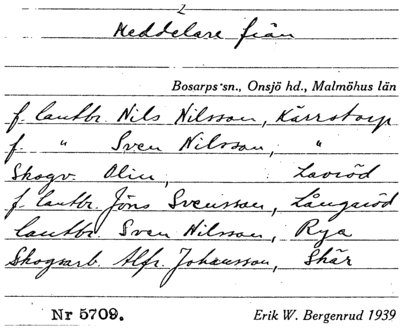 2
Meddelare från
Bosarps sn., Onsjö hd., Malmöhus län
f. lantbr. Nils Nilsson, Kärrstorp
f. " Sven Nilsson, "
Skogv. Olin, Laviöd
f. lantbr. Jöns Svensson, Långaröd
lantbr. Sven Nilsson, Rya
Skogsarb. Alfr. Johansson, Skär
Nr 5709. Erik W. Bergenrud 1939